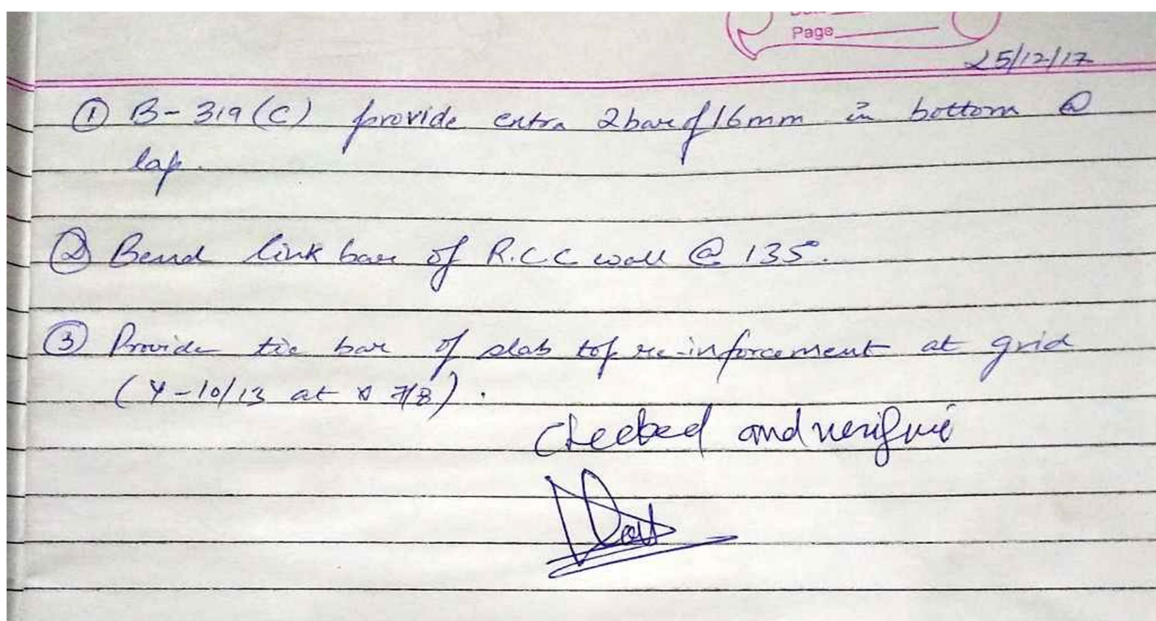 Page
25/12/17
① B-319(C) provide extra 2 bar of 16mm in bottom @
lap.
② Bend link bar of R.C.C wall @ 135°.
③ Provide tie bar of slab top re-inforcement at grid
(Y-10/13 at 7/8).
Checked and